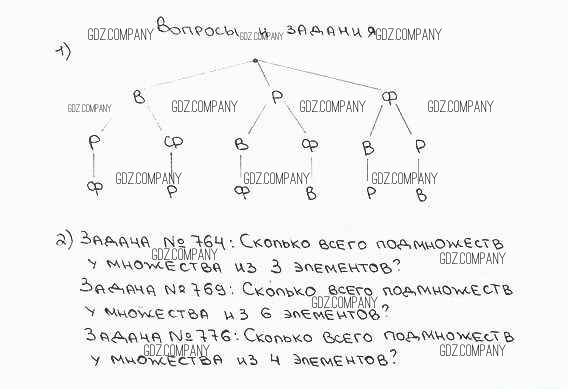 Вопросы и задания
GDZ.COMPANY GDZ.COMPANY GDZ.COMPANY
1)
В Р Ф
GDZ.COMPANY GDZ.COMPANY GDZ.COMPANY GDZ.COMPANY
Р СР В Ф В Р
GDZ.COMPANY GDZ.COMPANY GDZ.COMPANY
Ф Р Ф В Р В
2) Задача № 764: Сколько всего подмножеств
GDZ.COMPANY GDZ.COMPANY
у множества из 3 элементов?
Задача № 769: Сколько всего подмножеств
GDZ.COMPANY
у множества из 6 элементов?
Задача № 776: Сколько всего подмножеств
GDZ.COMPANY GDZ.COMPANY
у множества из 4 элементов?